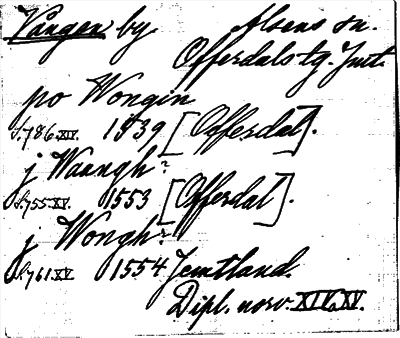 Vangen by Alsens sn.
Offerdals tg. Jmt.
po Wongin
s. 786. XIV. 1539 [Offerdal].
j Waangh:
s. 755. XV. 1553 [Offerdal].
j Wongh:
s. 761. XV 1554 Jemtland.
Dipl. norv. XIV. XV.